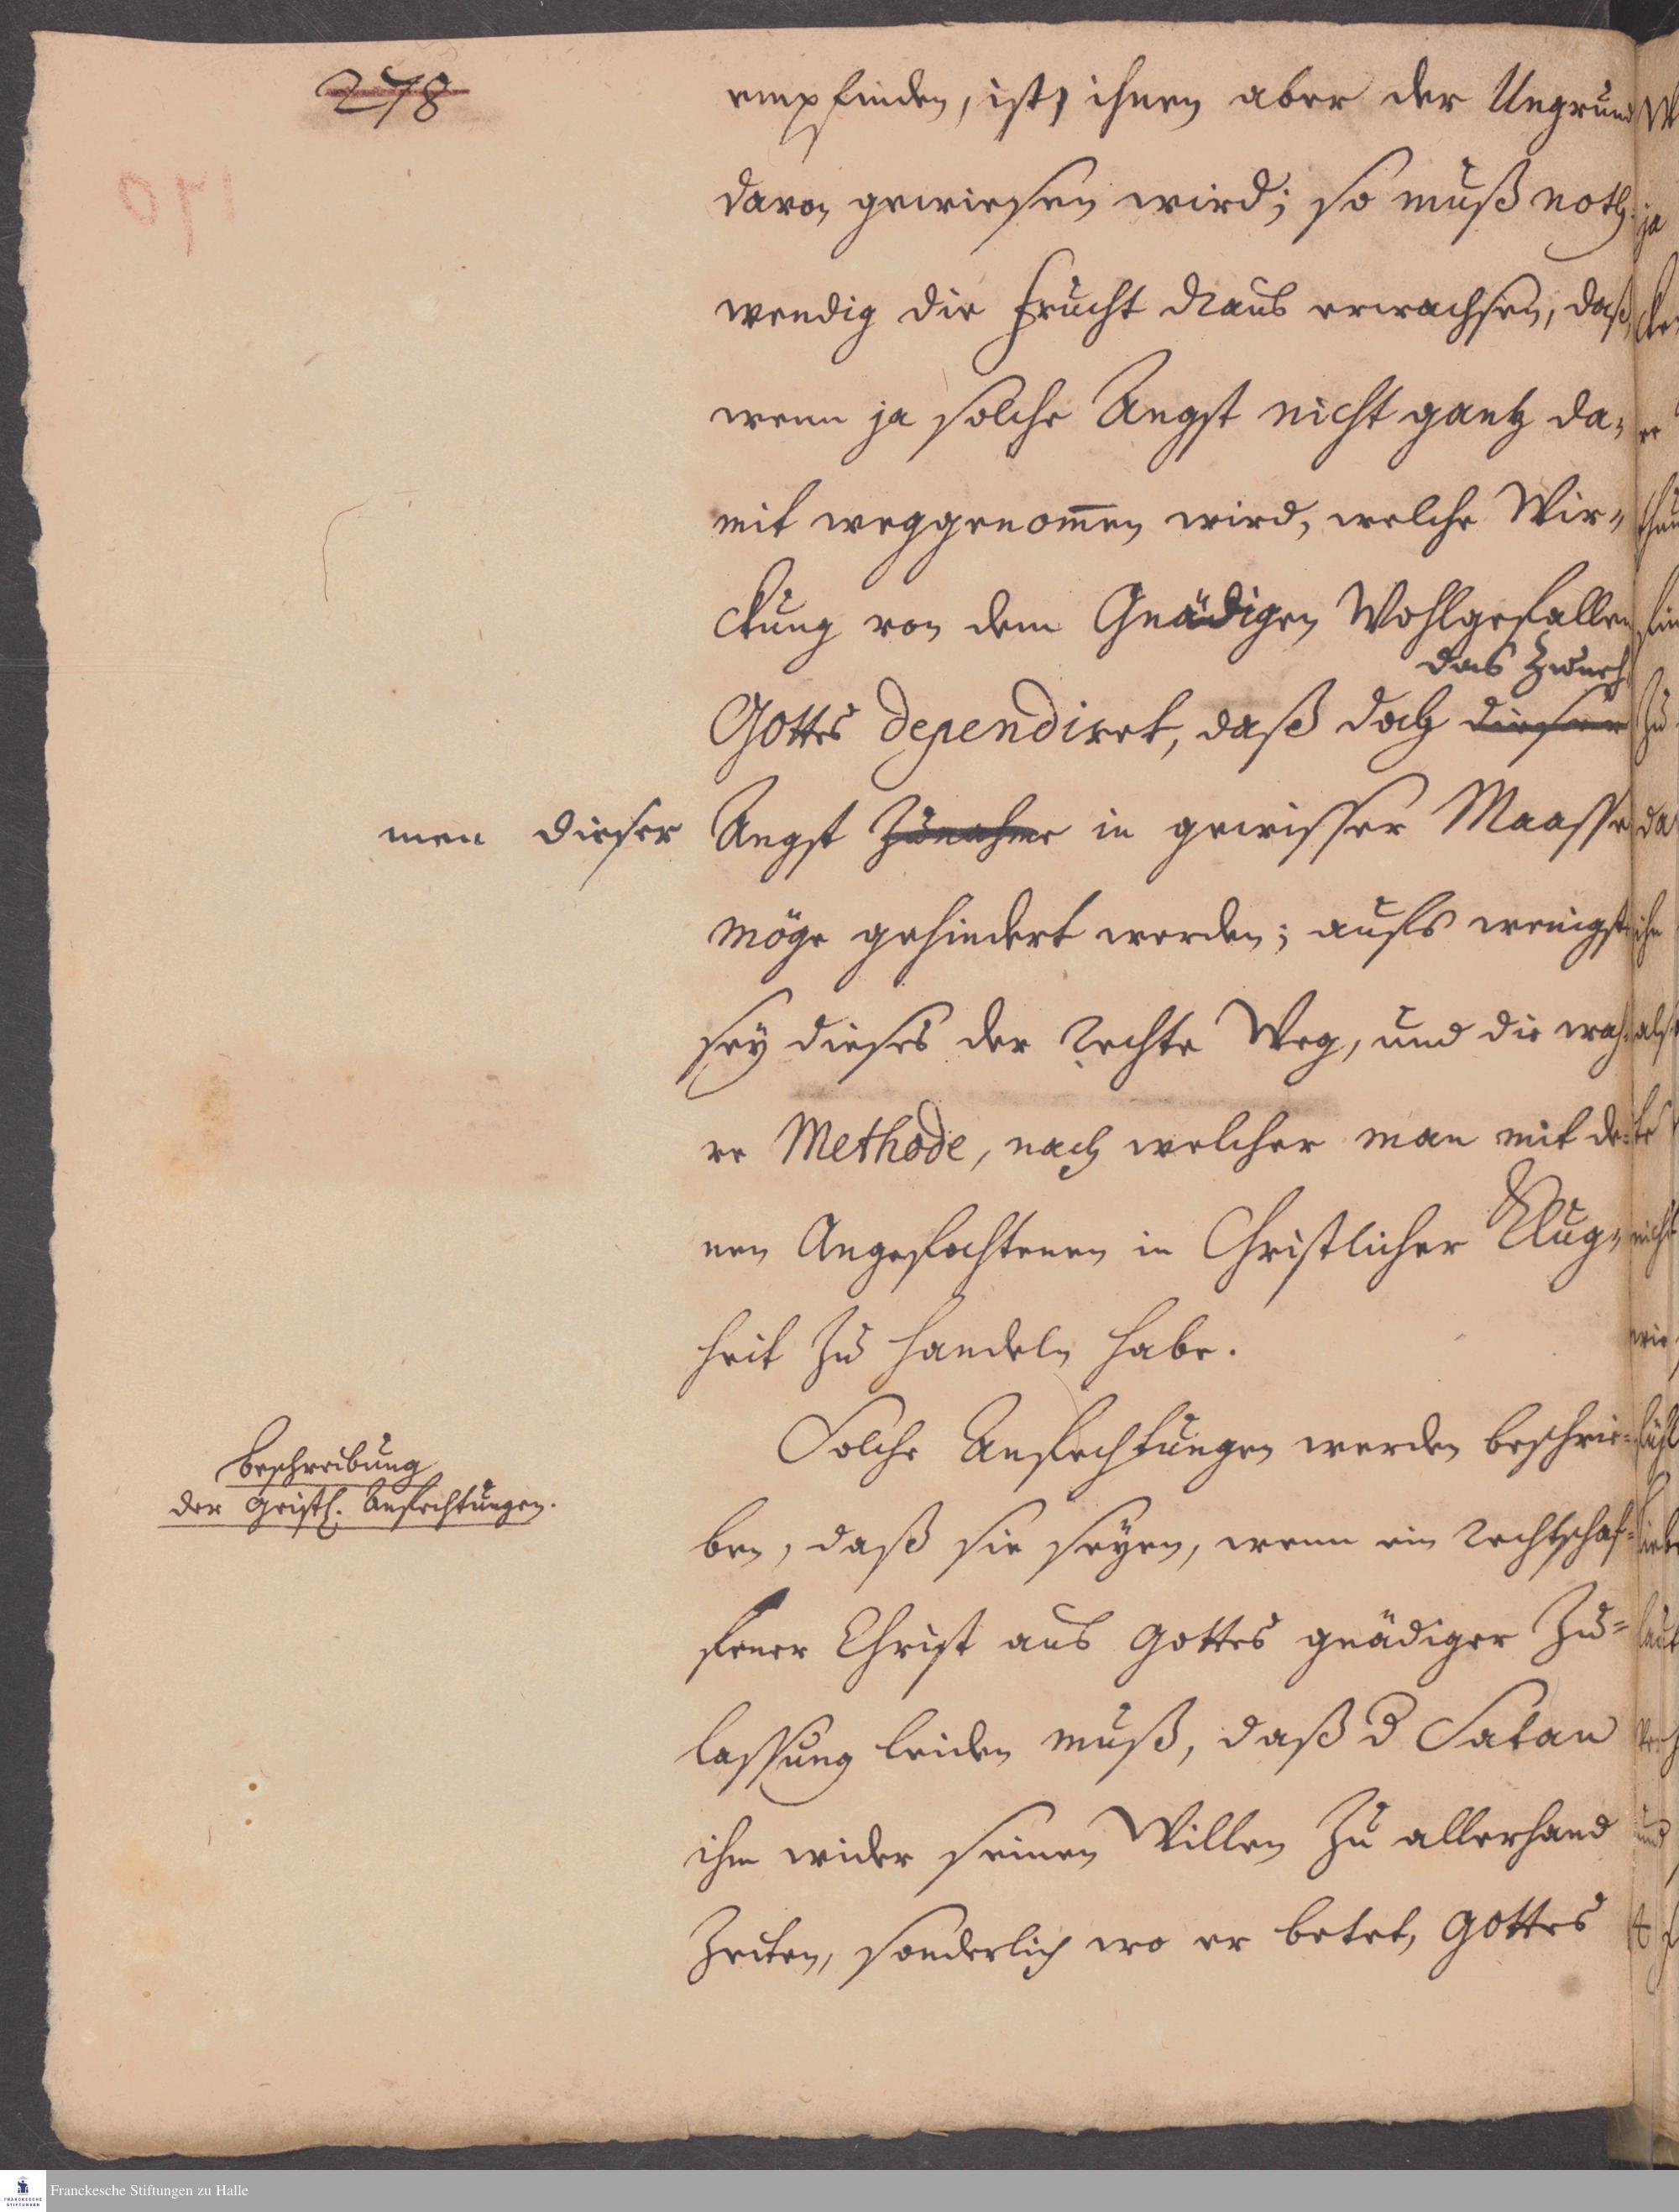 278
empfinden, ist, ihnen aber der Ungrund
davon gewiesen wird; so muß noth-
wendig die Frucht draus erwachsen, daß,
wenn ja solche Angst nicht gantz da-
mit weggenom̄en wird, welche Wir-
ckung von dem Gnädigen Wohlgefallen
das Zuneh
Gottes dependiret, daß doch dieser
men dieser Angst Zunahme in gewisser Maasse
möge gehindert werden; aufs wenigst
sey dieses der rechte Weg, und die wah-
re Methode, nach welcher man mit de-
nen Angefochtenen in Christlicher Klug-
heit zu handeln habe.
Solche Anfechtungen werden beschrie-
Beschreibung
der Geistl. Anfechtungen.
ben, daß sie seyen, wenn ein rechtschaf-
fener Christ aus Gottes gnädiger Zu-
lassung leiden muß, daß d Satan
ihm wider seinen Willen zu allerhand
Zeiten, sonderlich wo er betet, Gottes
Franckesche Stiftungen zu Halle